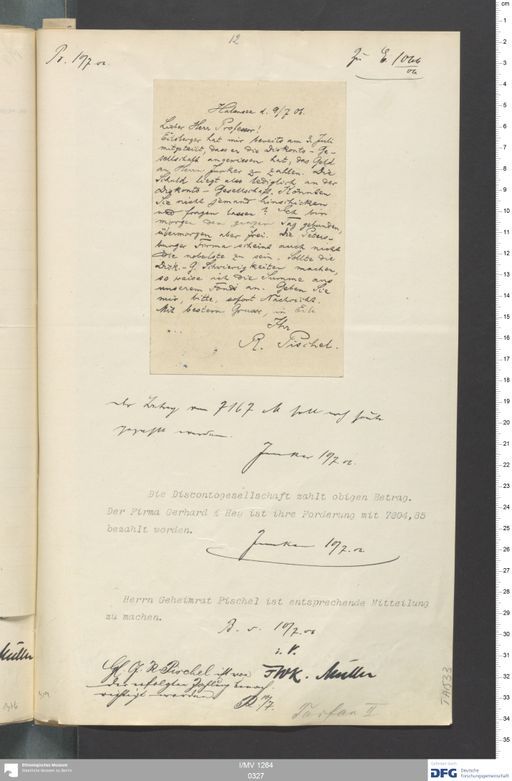 12
Pr. 10/7. 06.
Zu E. 1066/06
Halensee d. 9/7 06.
Lieber Herr Professor!
Eilsberger hat mir bereits am 3. Juli
mitgeteilt, dass er die Diskonto-Ge-
sellschaft angewiesen hat, das Geld
an Herrn Junker zu zahlen. Die
Schuld liegt also lediglich an der
Diskonto-Gesellschaft. Könnten
Sie nicht jemand hinschicken
und fragen lassen? Ich bin
morgen den ganzen Tag gebunden,
übermorgen aber frei. Die Peters-
burger Firma scheint auch nicht
die nobelste zu sein. Sollte die
Disk.-G. Schwierigkeiten machen,
so weise ich die Summe aus
unserem Fonds an. Geben Sie
mir, bitte, sofort Nachricht.
Mit bestem Gruss, in Eile
Ihr
R. Pischel.
Der Betrag von 7167 M soll noch heute
gezahlt werden.
Junker 10/7. 06.
Die Discontogesellschaft zahlt obigen Betrag.
Der Firma Gerhard & Hey ist ihre Forderung mit 7204,85
bezahlt worden.
Junker 10/7. 06
Herrn Geheimrat Pischel ist entsprechende Mitteilung
zu machen.
B. d. 10/7. 06
i. V.
FWK. Müller
H. G. R. Pischel ist von
der erfolgten Zahlung benach-
richtigt worden
10/7.
Turfan II
TA 033
Müller
Ethnologisches Museum
Staatliche Museen zu Berlin
I/MV 1264
0327
Gefördert durch
DFG Deutsche
Forschungsgemeinschaft